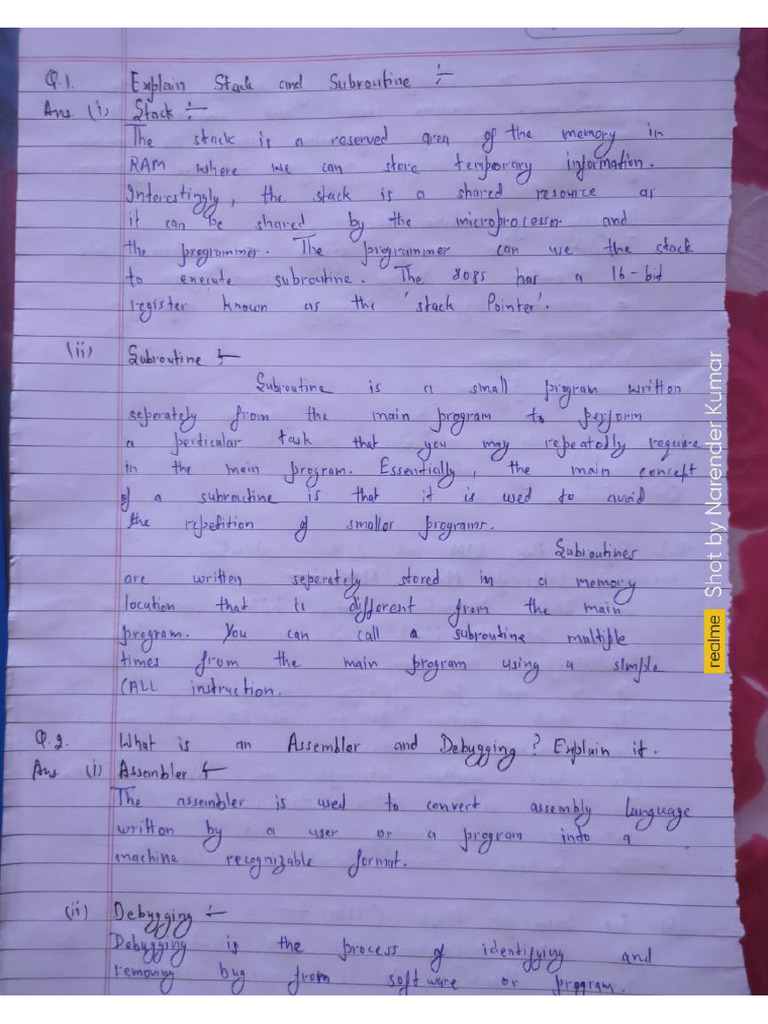 Q.1. Explain Stack and Subroutine :-
Ans. (i) Stack :-
The stack is a reserved area of the memory in
RAM where we can store temporary information.
Interestingly, the stack is a shared resource as
it can be shared by the microprocessor and
the programmer. The programmer can use the stack
to execute subroutine. The 8085 has a 16-bit
register known as the 'stack Pointer'.
(ii) Subroutine :-
Subroutine is a small program written
seperately from the main program to perform
a perticular task that you may repeatedly require
in the main program. Essentially, the main concept
of a subroutine is that it is used to avoid
the repetition of smaller programs.
Subroutines
are written seperately stored in a memory
location that is different from the main
program. You can call a subroutine multiple
times from the main program using a simple
CALL instruction.
Q.2. What is an Assembler and Debugging? Explain it.
Ans (i) Assembler :-
The assembler is used to convert assembly language
written by a user or a program into a
machine recognizable format.
(ii) Debugging :-
Debugging is the process of identifying and
removing bug from software or program.
realme Shot by Narender Kumar